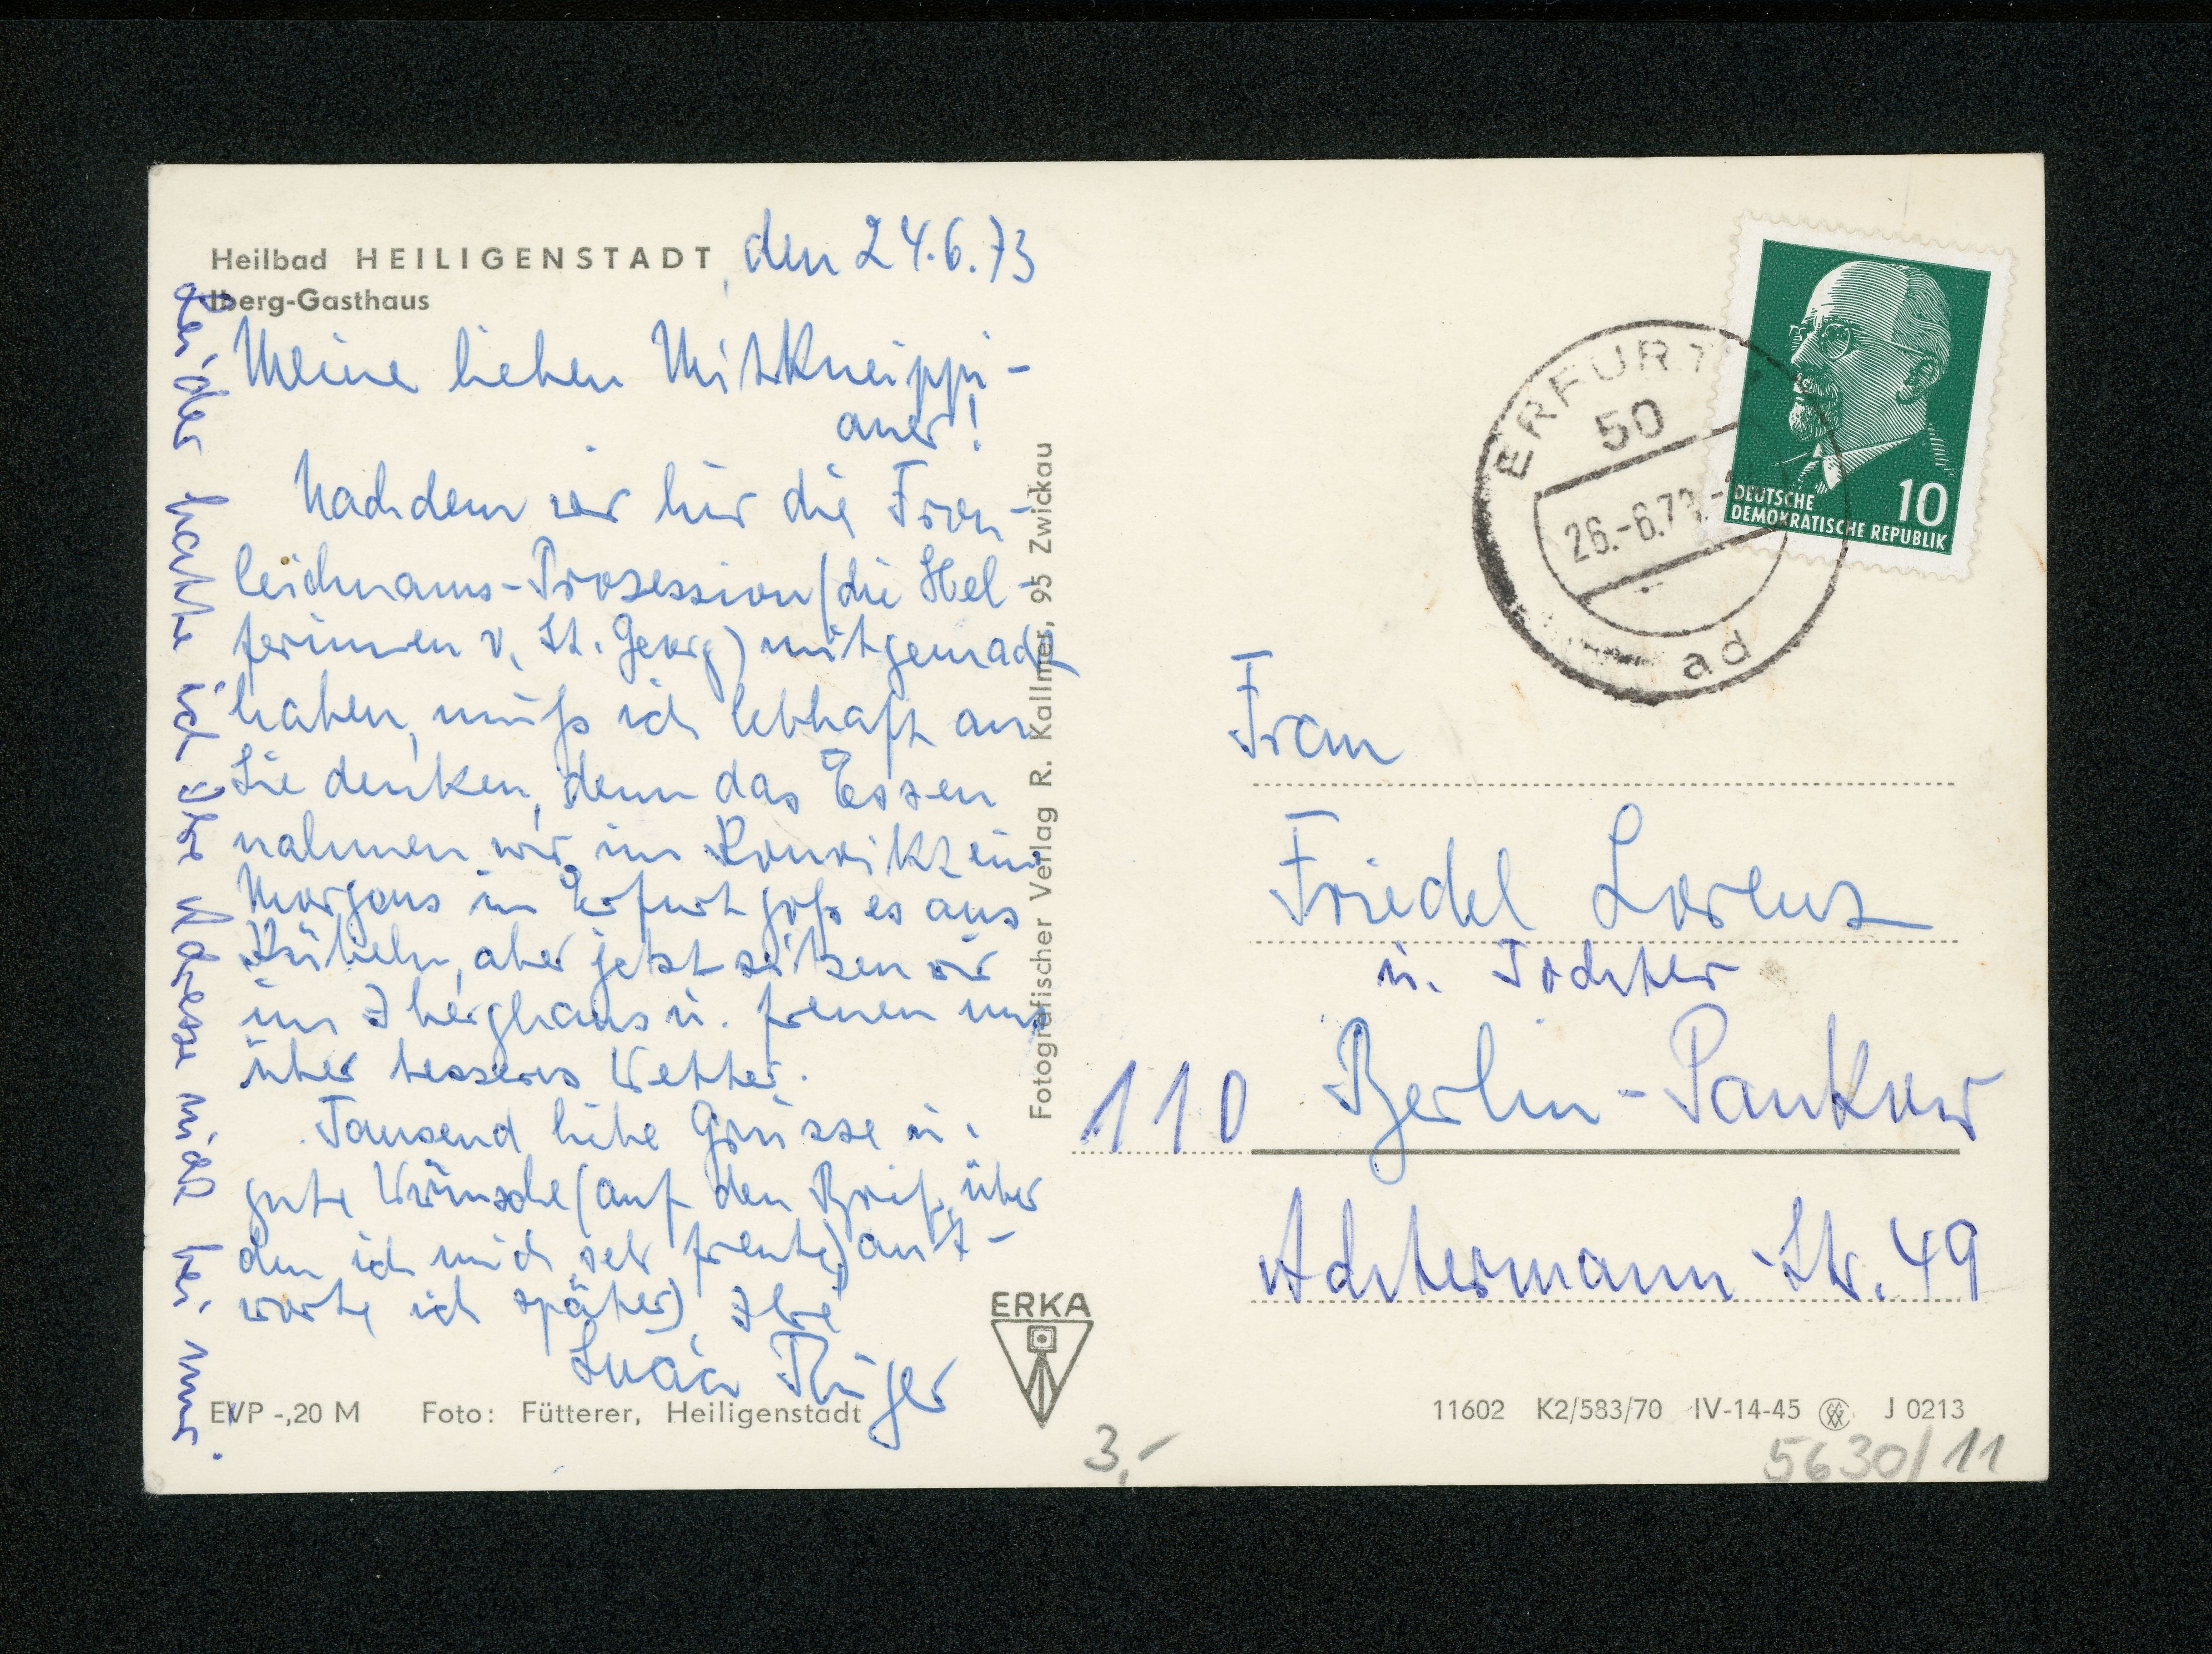 Heilbad HEILIGENSTADT, den 24.6.73
Iberg-Gasthaus
Meine lieben Mitkneippi-
aner!
Nachdem wir hier die Fron-
leichnams-Prozession (die Hel-
ferinnen v. St. Georg) mitgemacht
haben, muß ich lebhaft an
Sie denken, denn das Essen
nahmen wir im Konvikt ein.
Morgens in Erfurt goß es aus
Kübeln, aber jetzt sitzen wir
im Iberghaus u. freuen uns
über besseres Wetter.
Tausend liebe Grüsse u.
gute Wünsche (auf den Brief, über
den ich mich sehr freute, ant-
worte ich später) Ihre
Leider hatte ich Ihre Adresse nicht bei mir.
EVP -,20 M Foto: Fütterer, Heiligenstadt
Fotografischer Verlag R. Kallmer, 95 Zwickau
ERKA
3,-
DEUTSCHE
DEMOKRATISCHE REPUBLIK
10
ERFURT
50
26.-6.73
ad
Frau
Friedel Lorenz
u. Tochter
110 Berlin-Pankow
Achtermann Str. 49
11602 K2/583/70 IV-14-45 J 0213
5630/11